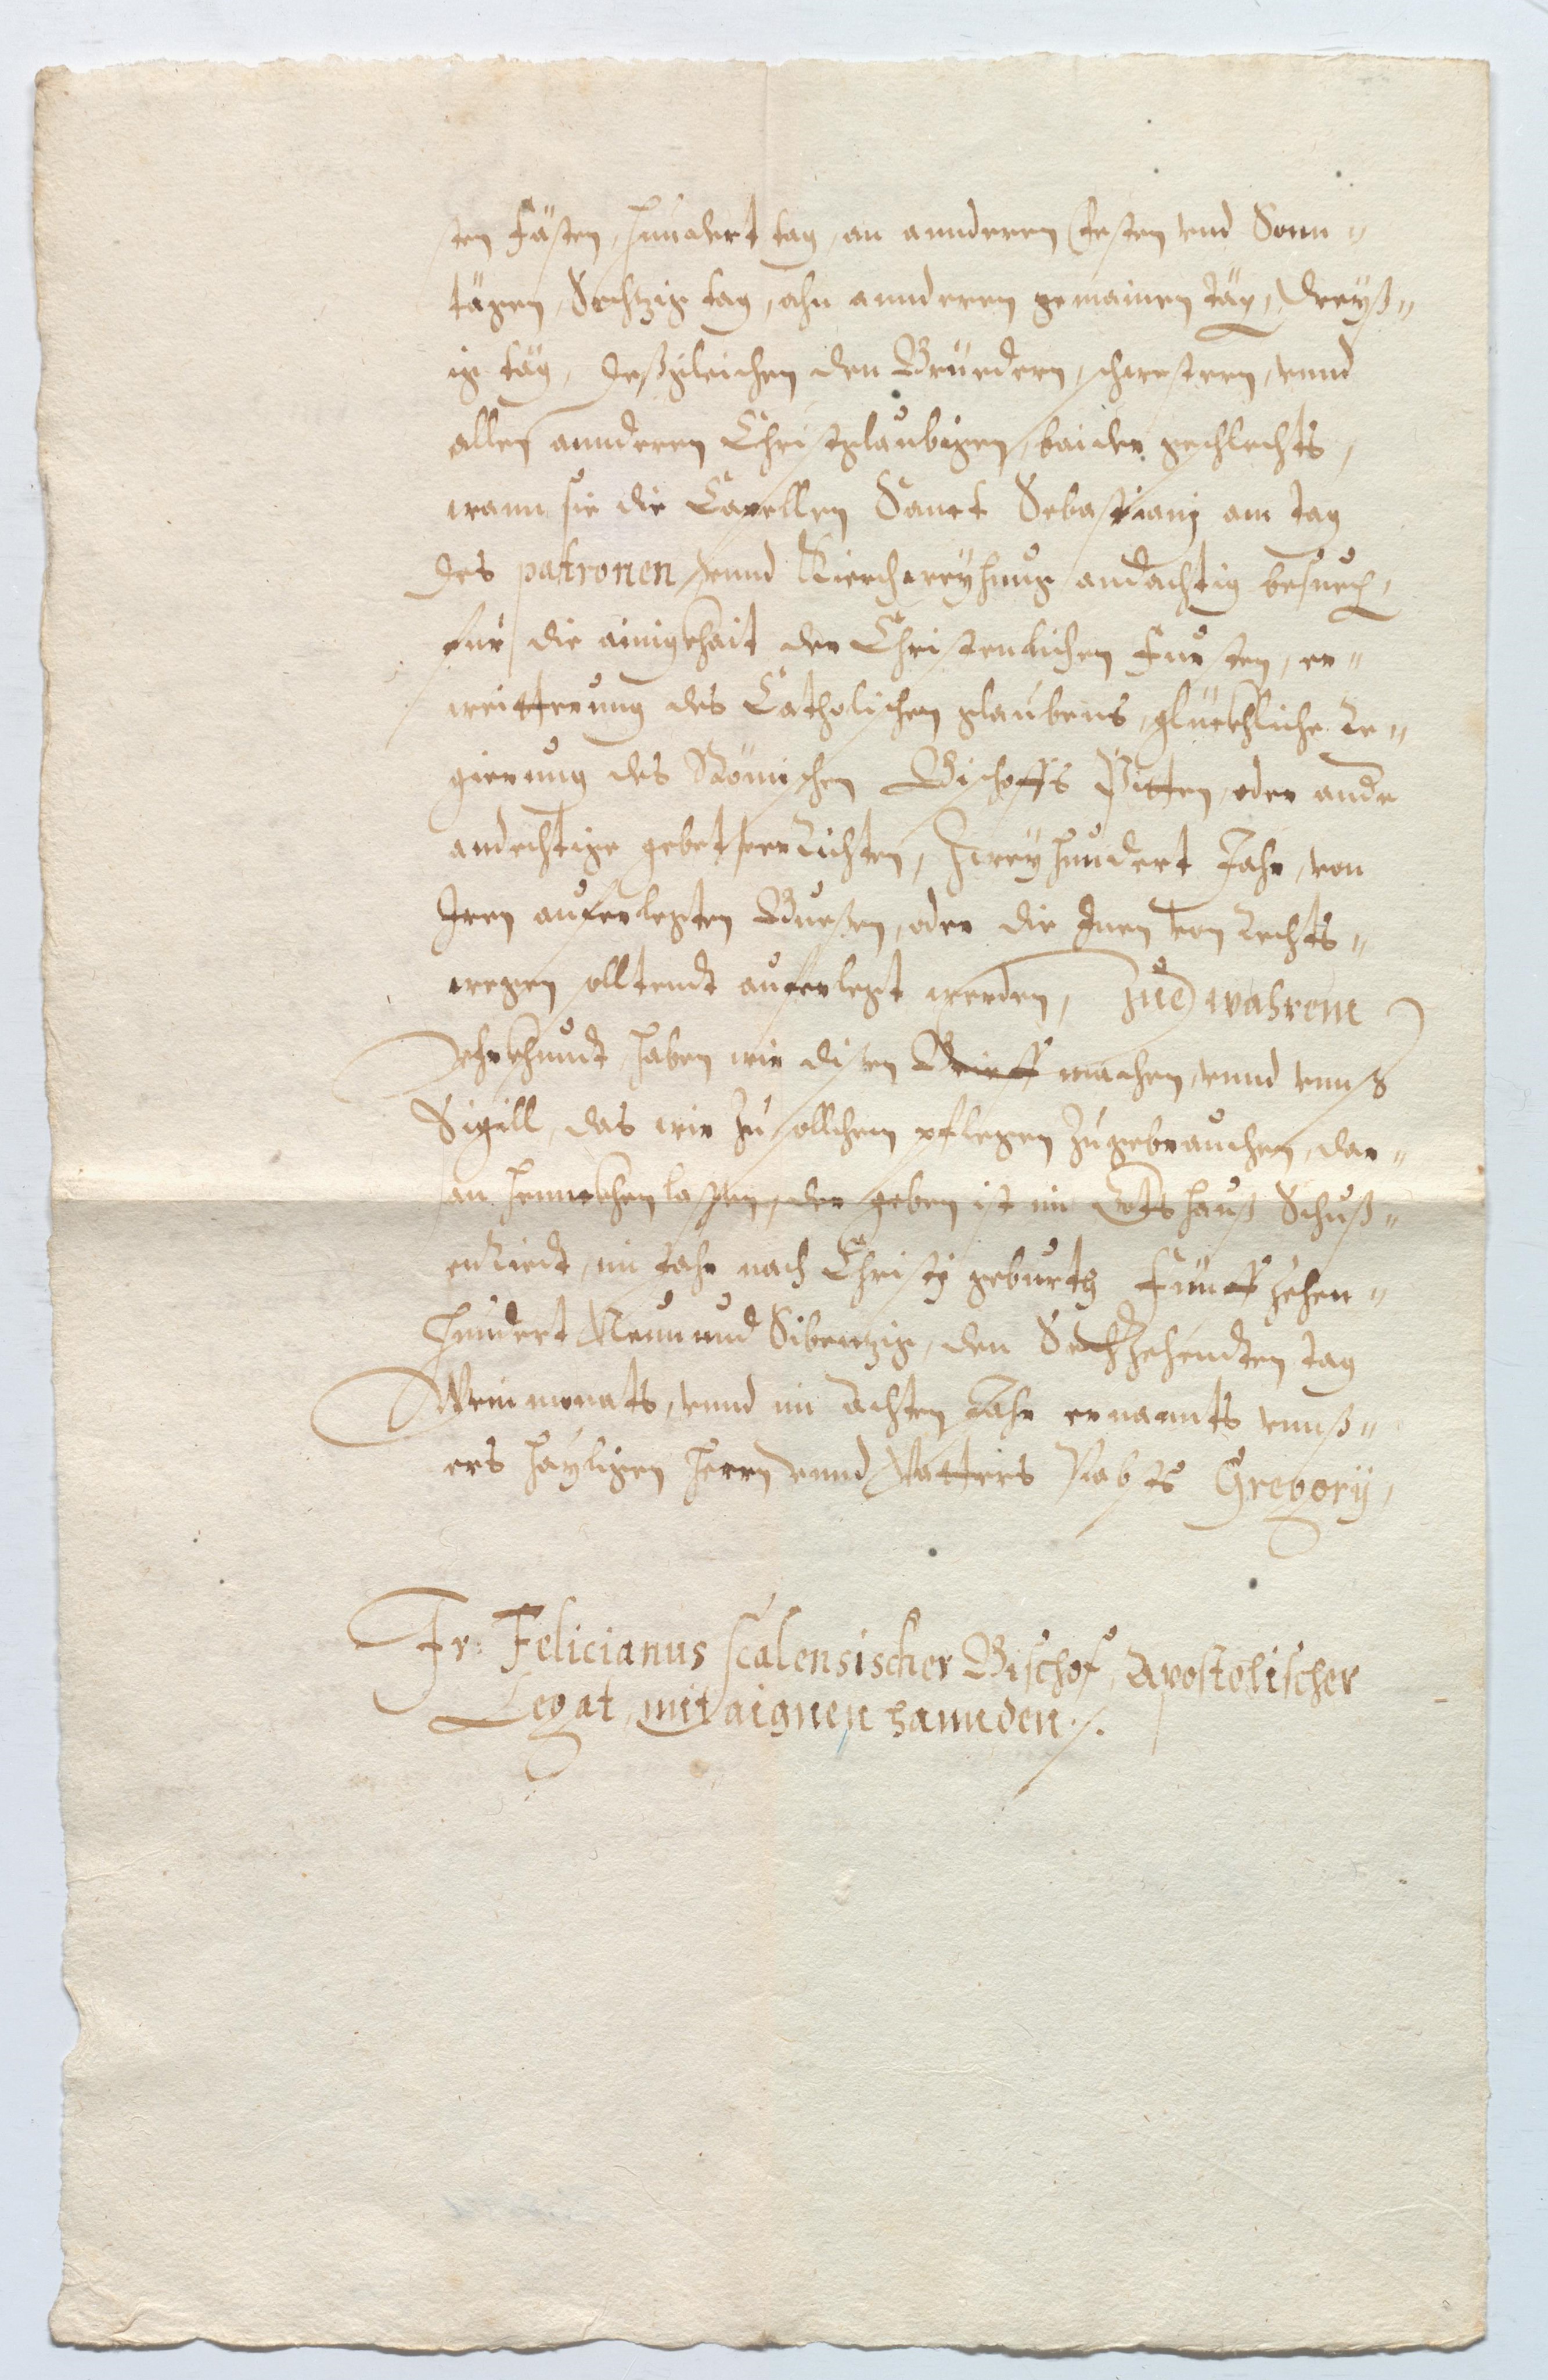 sten Fästen, hundert tag, an annderen Festen vnd Sonn„
tägen, Sechtzig tag, ahn annderen gemainen täg, dreyß„
ig täg, deßgleichen den Bruedern, schwestern, vnnd
allen annderen Christglaubigen, baider geschlechts,
wann sie die Capellen Sanct Sebastianj am tag
des patronen, vnnd Kierchweyhung andächtig besuech,
für die ainigkhait der Christenlichen Fursten, er„
weitterung des Catholischen glaubens, glückhliche Re„
gierung des Römischen Bischoffs Pitten, oder ande
andechtige gebet verrichten, Zwey hundert Jahr, von
Iren auferlegten Buessen, oder die Inen von Rechts„
wegen solltendt auferlegt werden, Zue wahrem
Vhrkhundt, haben wir disen Brieff machen, vnnd vnnß
Sigill, das wir zu sollchem pflegen zugebrauchen, dar„
an hennckhen lassen, der geben ist im Gotshauß Schuß„
enRiedt, im Jahr nach Christj geburth Fünffzehen„
hundert Neunund Sibentzig, den Sechzehendten tag
Weinmonats, vnnd im Achten Jahr ernannts vnnß„
ers hayligen Herrn vnnd Vatters Pabsts Gregorÿ,
Fr: Felicianus scalensischer Bischof, Apostolischer
Legat, mit aignen hannden /.